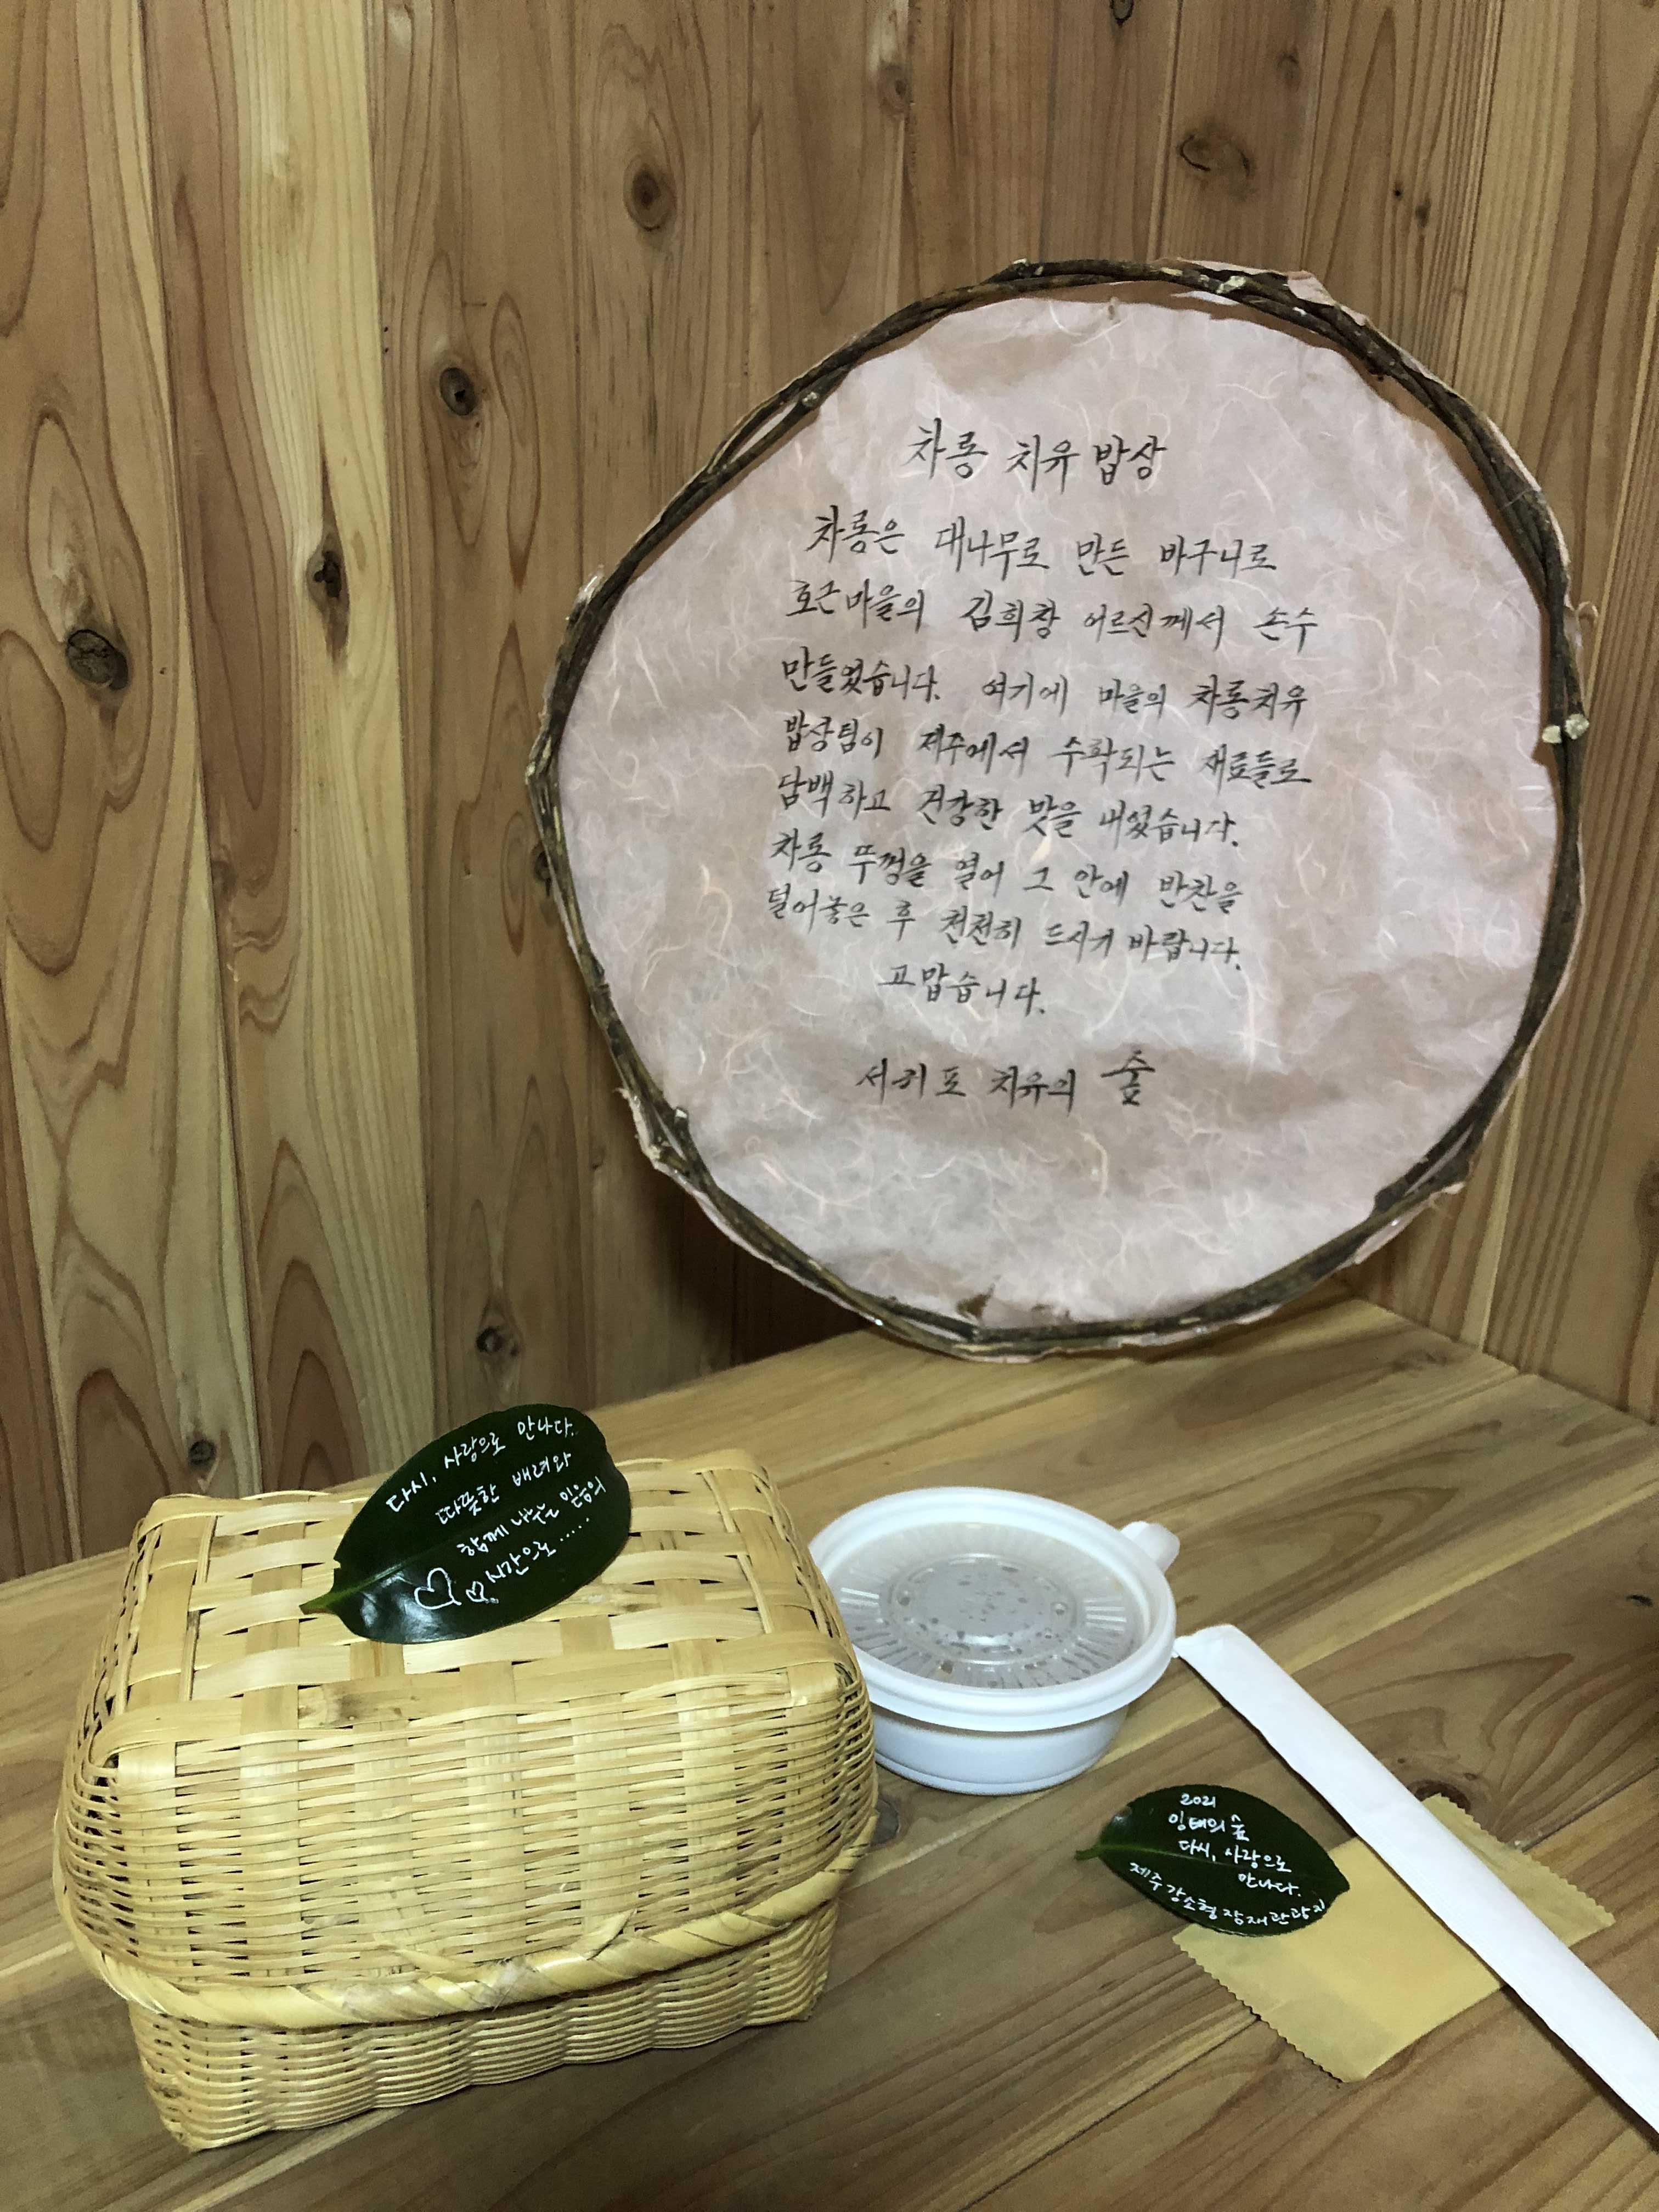 차롱 치유 밥상
차롱은 대나무로 만든 바구니로
호근마을의 김희창 어르신께서 손수
만들었습니다. 여기에 마을의 차롱치유
밥상팀이 제주에서 수확되는 재료들로
담백하고 건강한 맛을 내었습니다.
차롱 뚜껑을 열어 그 안에 반찬을
덜어놓은 후 천천히 드시기 바랍니다.
고맙습니다.
서귀포 치유의 숲
다시, 사랑으로 만나다.
따뜻한 배려와
함께 나누는 믿음의
시간으로......
2021
잉태의 숲
다시, 사랑으로
만나다.
제주 강소형 잠재관광지